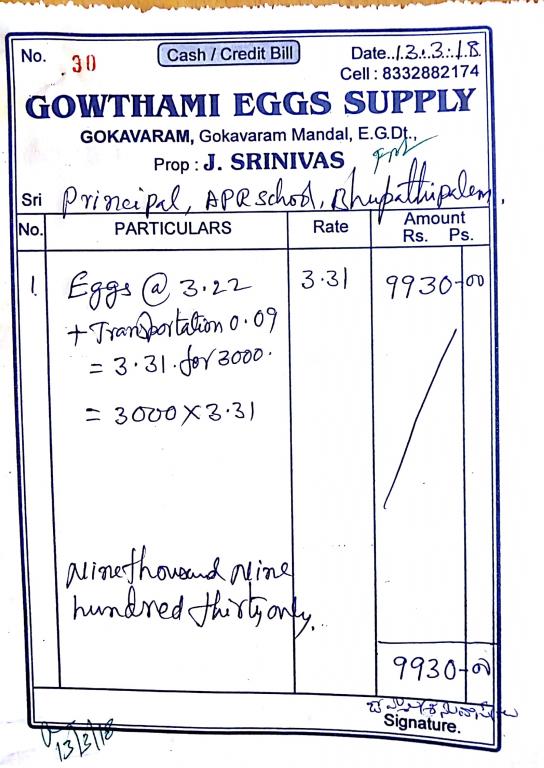 No. 30 Cash / Credit Bill Date..13.3.18
Cell : 8332882174
GOWTHAMI EGGS SUPPLY
GOKAVARAM, Gokavaram Mandal, E.G.Dt.,
Prop : J. SRINIVAS
Sri Principal, APR School, Bhupathipalem,
No. PARTICULARS Rate Amount
Rs. Ps.
1. Eggs @ 3.22 3.31 9930-00
+ Transportation 0.09
= 3.31. for 3000.
= 3000 X 3.31
Nine thousand Nine
hundred thirty only.
9930-00
Signature.
13/3/18